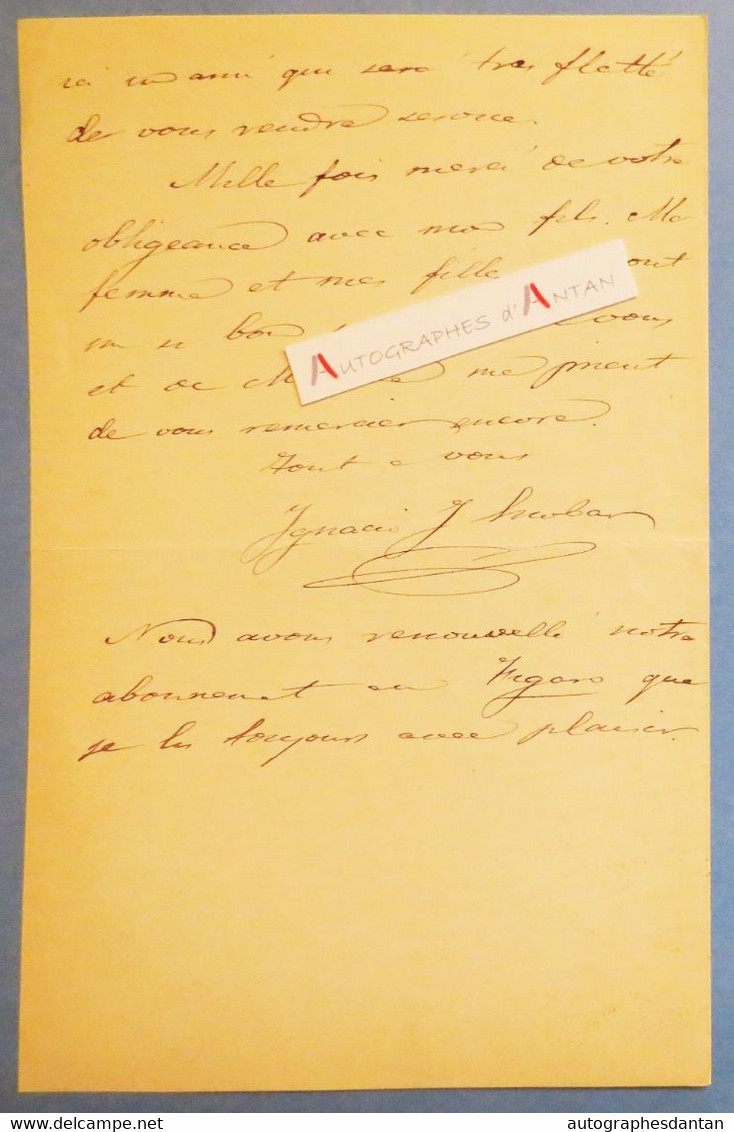 ici un ami qui sera très flatté
de vous rendre service.
Mille fois merci de votre
obligeance avec mon fils. Ma
femme et mes fille ont
un si bon vous
AUTOGRAPHES d'ANTAN
et de me prient
de vous remercier encore.
Tout a vous
Ignacio J Escobar
Nous avons renouvellé notre
abonnement au Figaro que
je lis toujours avec plaisir.
delcampe.net
autographesdantan